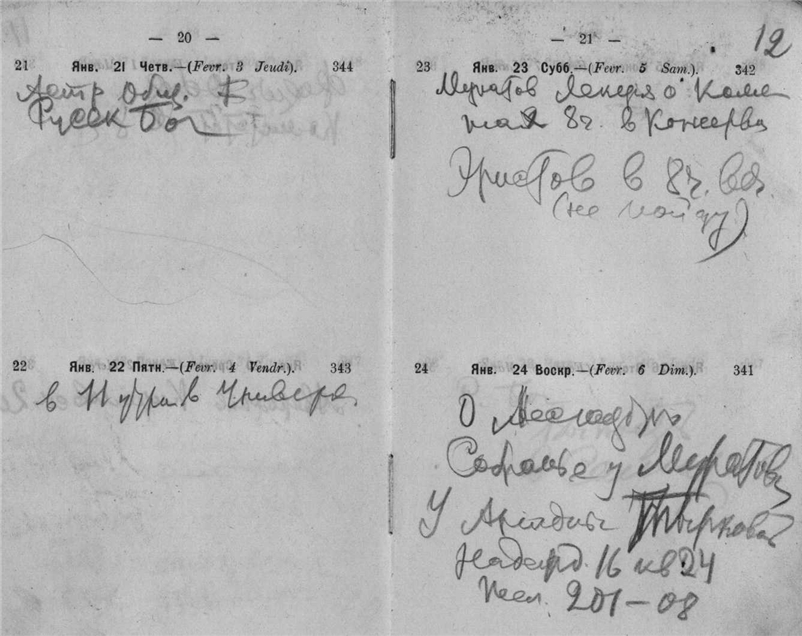 — 20 —
21 Янв. 21 Четв.—(Fevr. 3 Jeudi). 344
Астр Общ.
Русск
22 Янв. 22 Пятн.—(Fevr. 4 Vendr.). 343
в 11 утра в Универс
— 21 —
12
23 Янв. 23 Субб.—(Fevr. 5 Sam.). 342
Муратов Лекция о
8 ч. в Консерв
Христов в 8 ч. веч.
(не пойду)
24 Янв. 24 Воскр.—(Fevr. 6 Dim.). 341
О
Собранье у Муратова
У Ариадны Тырковой
Надежд. 16 кв 24
тел. 201—08